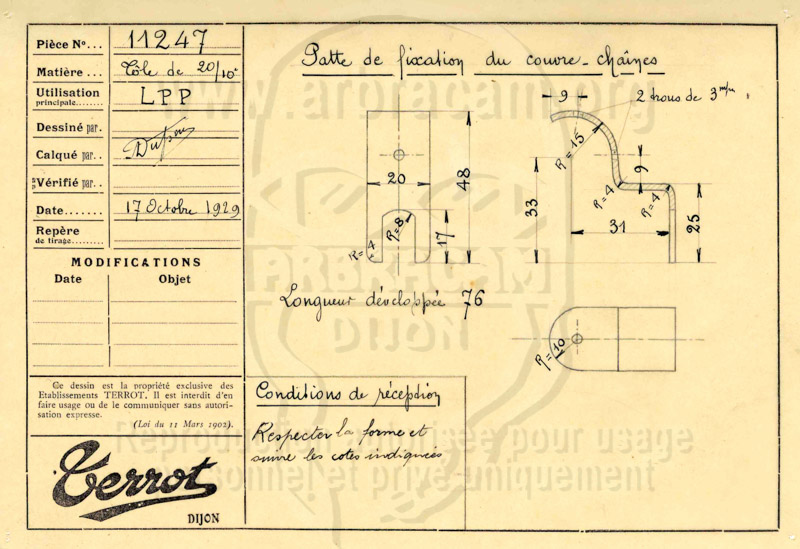 Pièce N°... 11247
Matière... Tôle de 20/10e
Utilisation
principale........ LPP
Dessiné par.
Calqué par..
Vérifié par..
Date....... 17 Octobre 1929
Repère
de tirage........
MODIFICATIONS
Date Objet
Ce dessin est la propriété exclusive des
Etablissements TERROT. Il est interdit d'en
faire usage ou de le communiquer sans autori-
sation expresse.
(Loi du 11 Mars 1902).
Terrot
DIJON
Patte de fixation du couvre-chaînes
9
2 trous de 3 m/m
R=15
20
48
R=8
R=4
17
33
9
R=4
R=4
31
25
Longueur développée 76
R=10
Conditions de réception
Respecter la forme et
suivre les cotes indiquées
www.arbracam.org
ARBRACAM
DIJON
pour usage
et privé uniquement